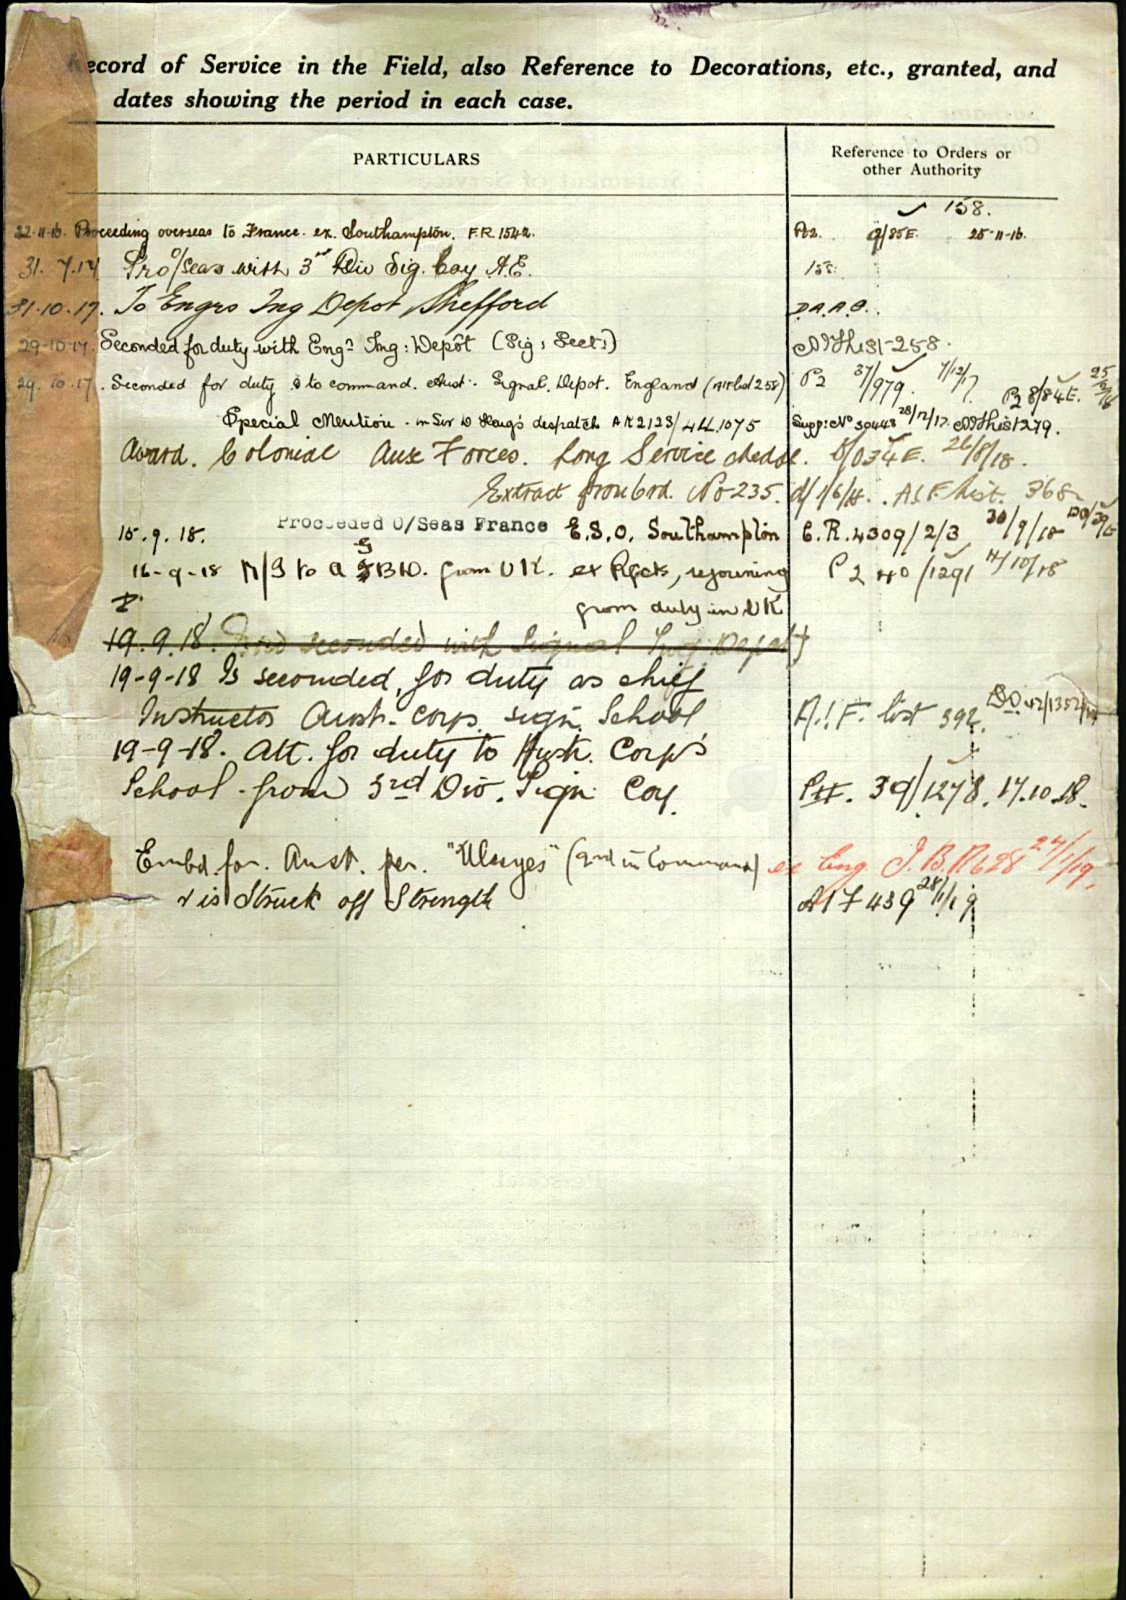 Record of Service in the Field, also Reference to Decorations, etc., granted, and
dates showing the period in each case.
PARTICULARS
Reference to Orders or
other Authority
158.
22-11-16. Proceeding overseas to France. ex. Southampton. F.R. 1542. P2. 9/85E. 25-11-16.
31. 7.17 Pro o/seas with 3rd Div Sig. Coy A.E. 158.
31.10.17. To Engrs Tng Depot Shefford D.A.A.G.
29-10-17. Seconded for duty with Engrs Tng: Depôt (Sig: Sect:) 258.
29.10.17. Seconded for duty & to command. Aust. Signal. Depot. England P2 37/979. 7/12/17. P2 8/84E.
Special Mention. in Sir D Haig's despatch AR2123/4LL.1075 Supp: No 30448 28/12/17. 279.
Award. Colonial Aux Forces. Long Service Medal. 26/8/18.
Extract from Ord. No 235. A.I.F. List. 368
15.9.18. Proceeded O/Seas France E.S.O. Southampton C.R.4309/2/3 30/9/18
16-9-18 from UK. rejoining P2 40/1291 14/10/18
from duty in UK
19.9.18. seconded with Signal Tng Depot
19-9-18 Is seconded, for duty as chief
Instructor Aust. Corps. Sign. School A.I.F. list 392.
19-9-18. Att. for duty to Aust. Corps
School from 3rd Div. Sign. Coy. 39/1278. 17.10.18.
Embd for. Aust. per. "Ulysses" (2nd in Command) ex Eng. 24/1/19.
& is Struck off Strength AIF 439 28/1/19